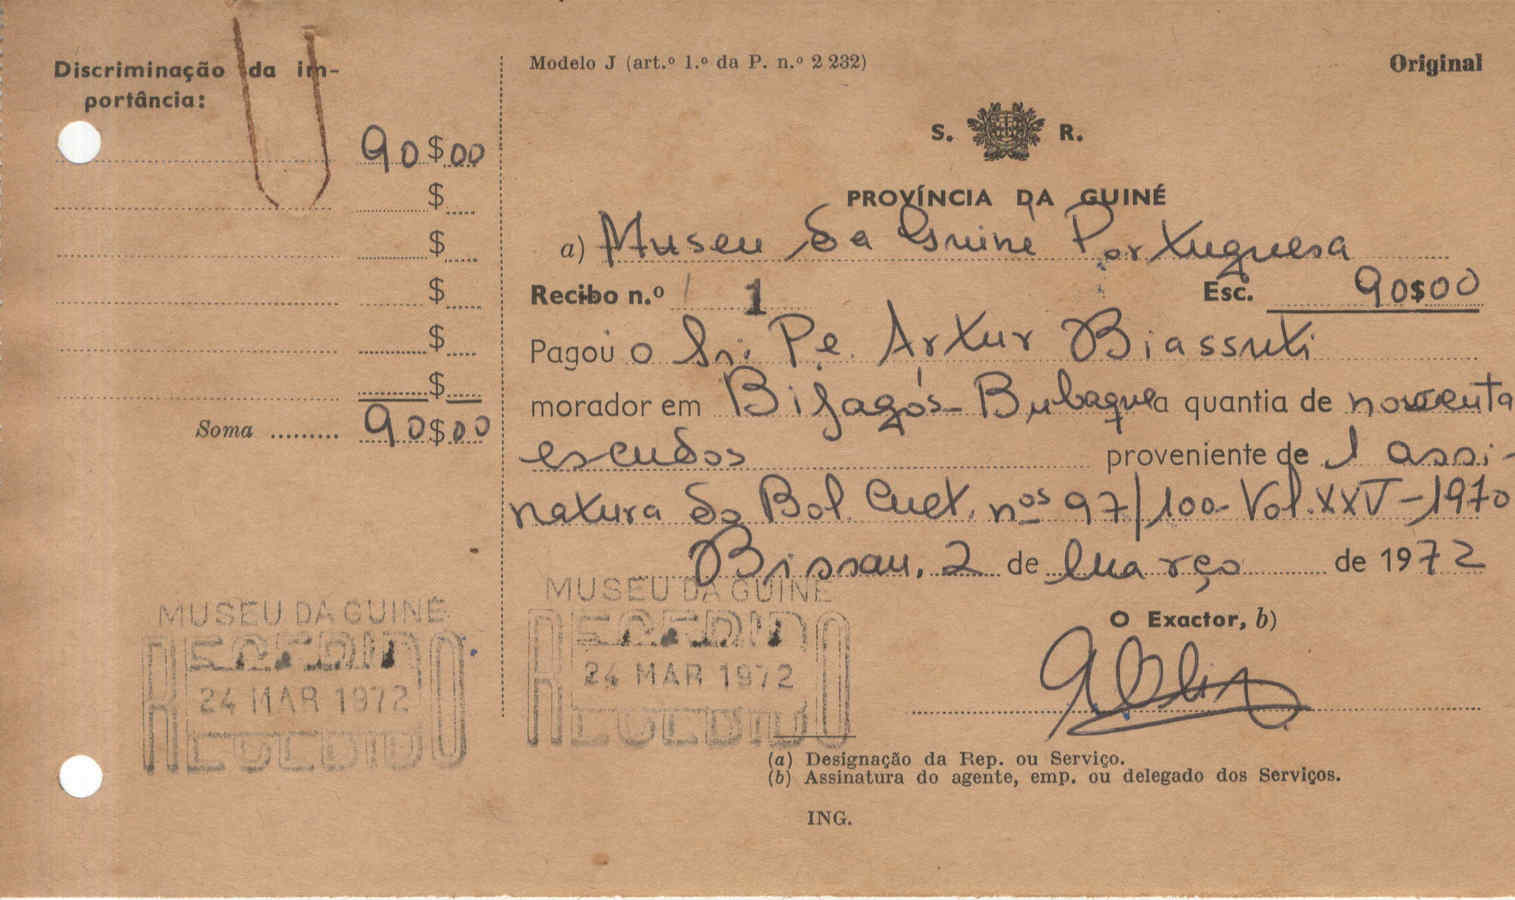 Discriminação da im-
portância:
90$00
$
$
$
$
$
Soma ......... 90$00
Modelo J (art.º 1.º da P. n.º 2 232)
Original
S. R.
PROVÍNCIA DA GUINÉ
a) Museu da Guiné Portuguesa
Recibo n.º 1 Esc. 90$00
Pagou o Sr. Pe. Artur Biassuti
morador em Bijagós - Bubaque a quantia de noventa
escudos proveniente de 1 assi-
natura do Bol. Cult. nos 97/100 - Vol. XXV - 1970
Bissau, 2 de Março de 1972
MUSEU DA GUINÉ
RECEBIDO
24 MAR 1972
RECEBIDO
MUSEU DA GUINÉ
RECEBIDO
24 MAR 1972
RECEBIDO
O Exactor, b)
(a) Designação da Rep. ou Serviço.
(b) Assinatura do agente, emp. ou delegado dos Serviços.
ING.